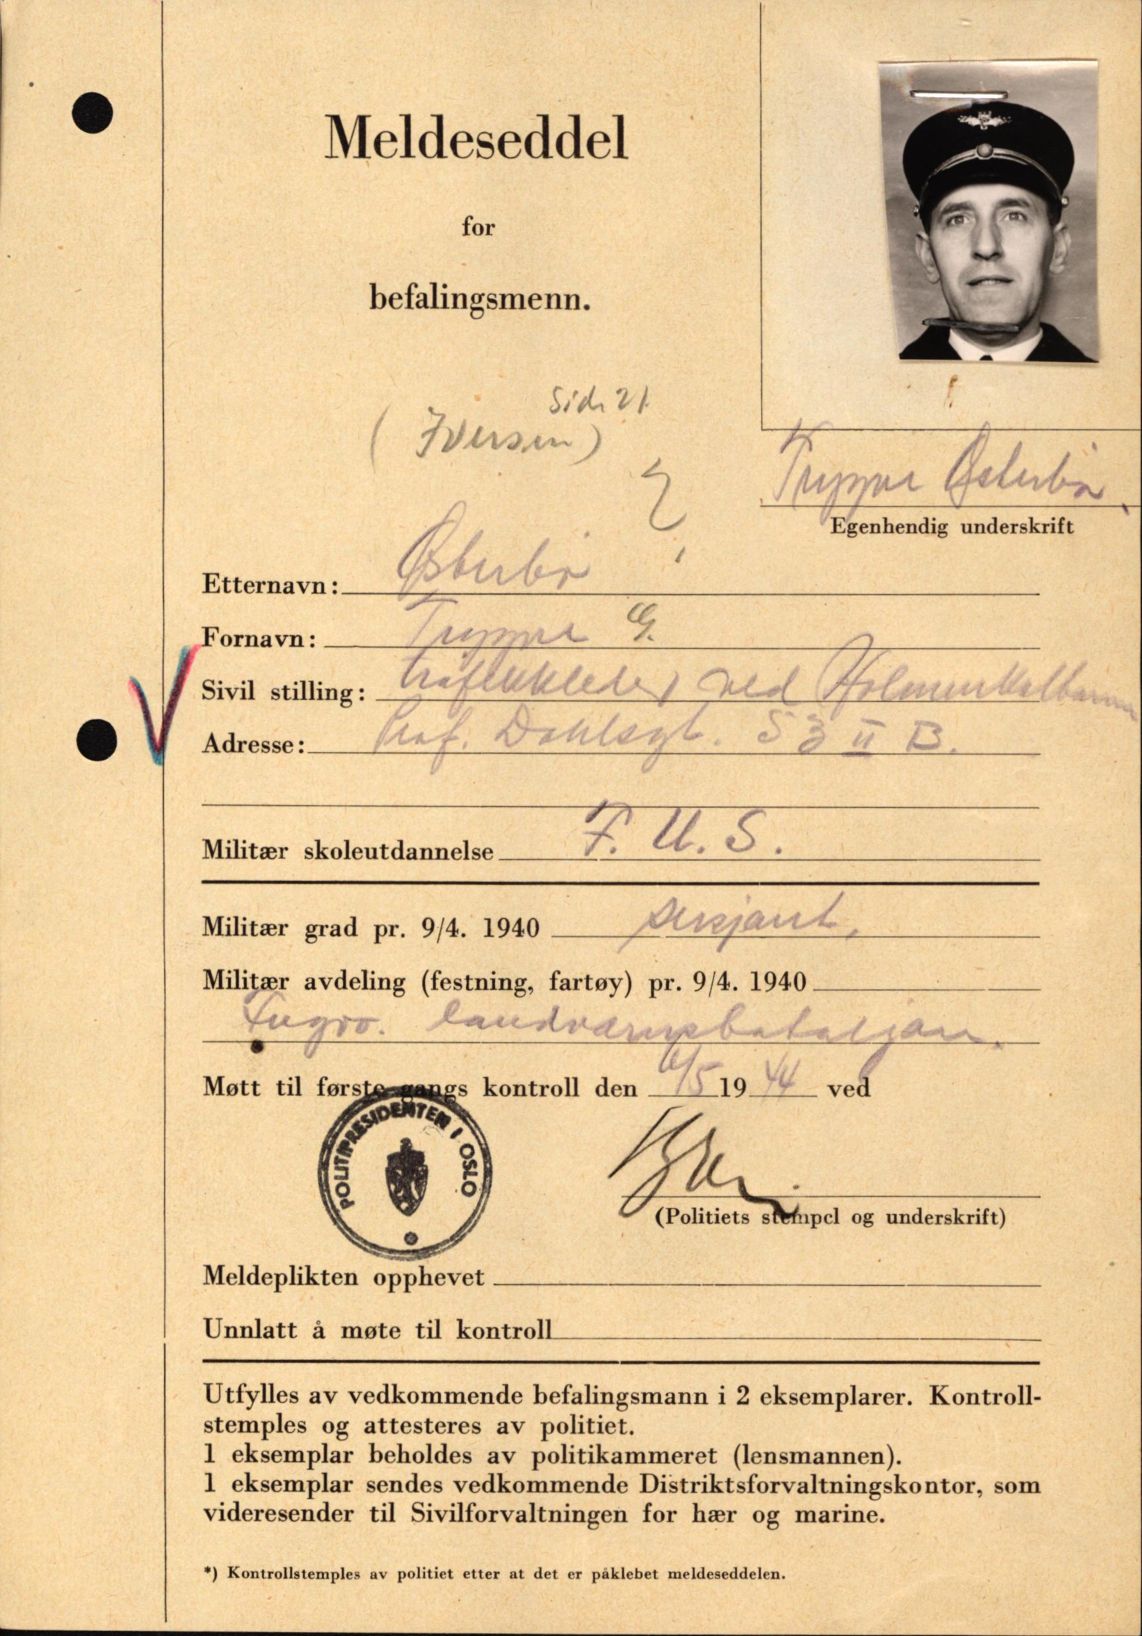 Meldeseddel
for
befalingsmenn.
Side 21
(Iversen)
Trygve Østerbø
Egenhendig underskrift
Etternavn: Østerbø
Fornavn: Trygve G.
Sivil stilling: trafikkleder ved Holmenkolbanen
Adresse: Prof. Dahlsgt. 53 II B.
Militær skoleutdannelse F. U. S.
Militær grad pr. 9/4. 1940 sersjant.
Militær avdeling (festning, fartøy) pr. 9/4. 1940
landvernsbataljon.
Møtt til første gangs kontroll den 6/5 1944 ved
POLITIPRESIDENTEN I OSLO
(Politiets stempel og underskrift)
Meldeplikten opphevet
Unnlatt å møte til kontroll
Utfylles av vedkommende befalingsmann i 2 eksemplarer. Kontroll-
stemples og attesteres av politiet.
1 eksemplar beholdes av politikammeret (lensmannen).
1 eksemplar sendes vedkommende Distriktsforvaltningskontor, som
videresender til Sivilforvaltningen for hær og marine.
*) Kontrollstemples av politiet etter at det er påklebet meldeseddelen.